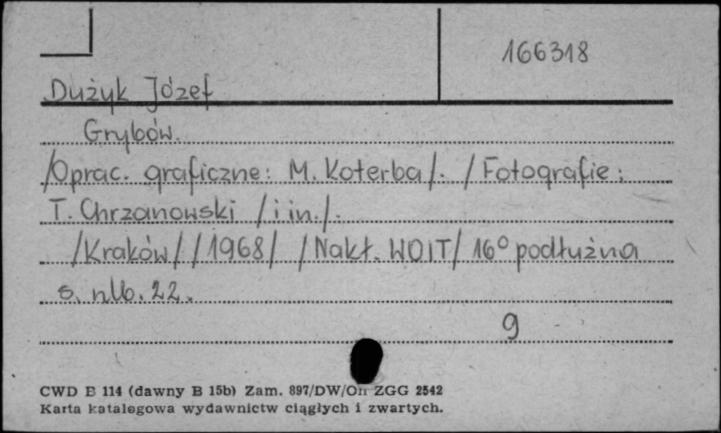 166318
Dużyk Józef
Grybów.
/Oprac. graficzne: M. Koterba/. /Fotografie:
T. Chrzanowski /i in./.
/Kraków/ /1968/ /Nakł. WOIT/ 16° podłużna
s. nlb. 22.
9
CWD B 114 (dawny B 15b) Zam. 897/DW/On ZGG 2542
Karta katalogowa wydawnictw ciągłych i zwartych.